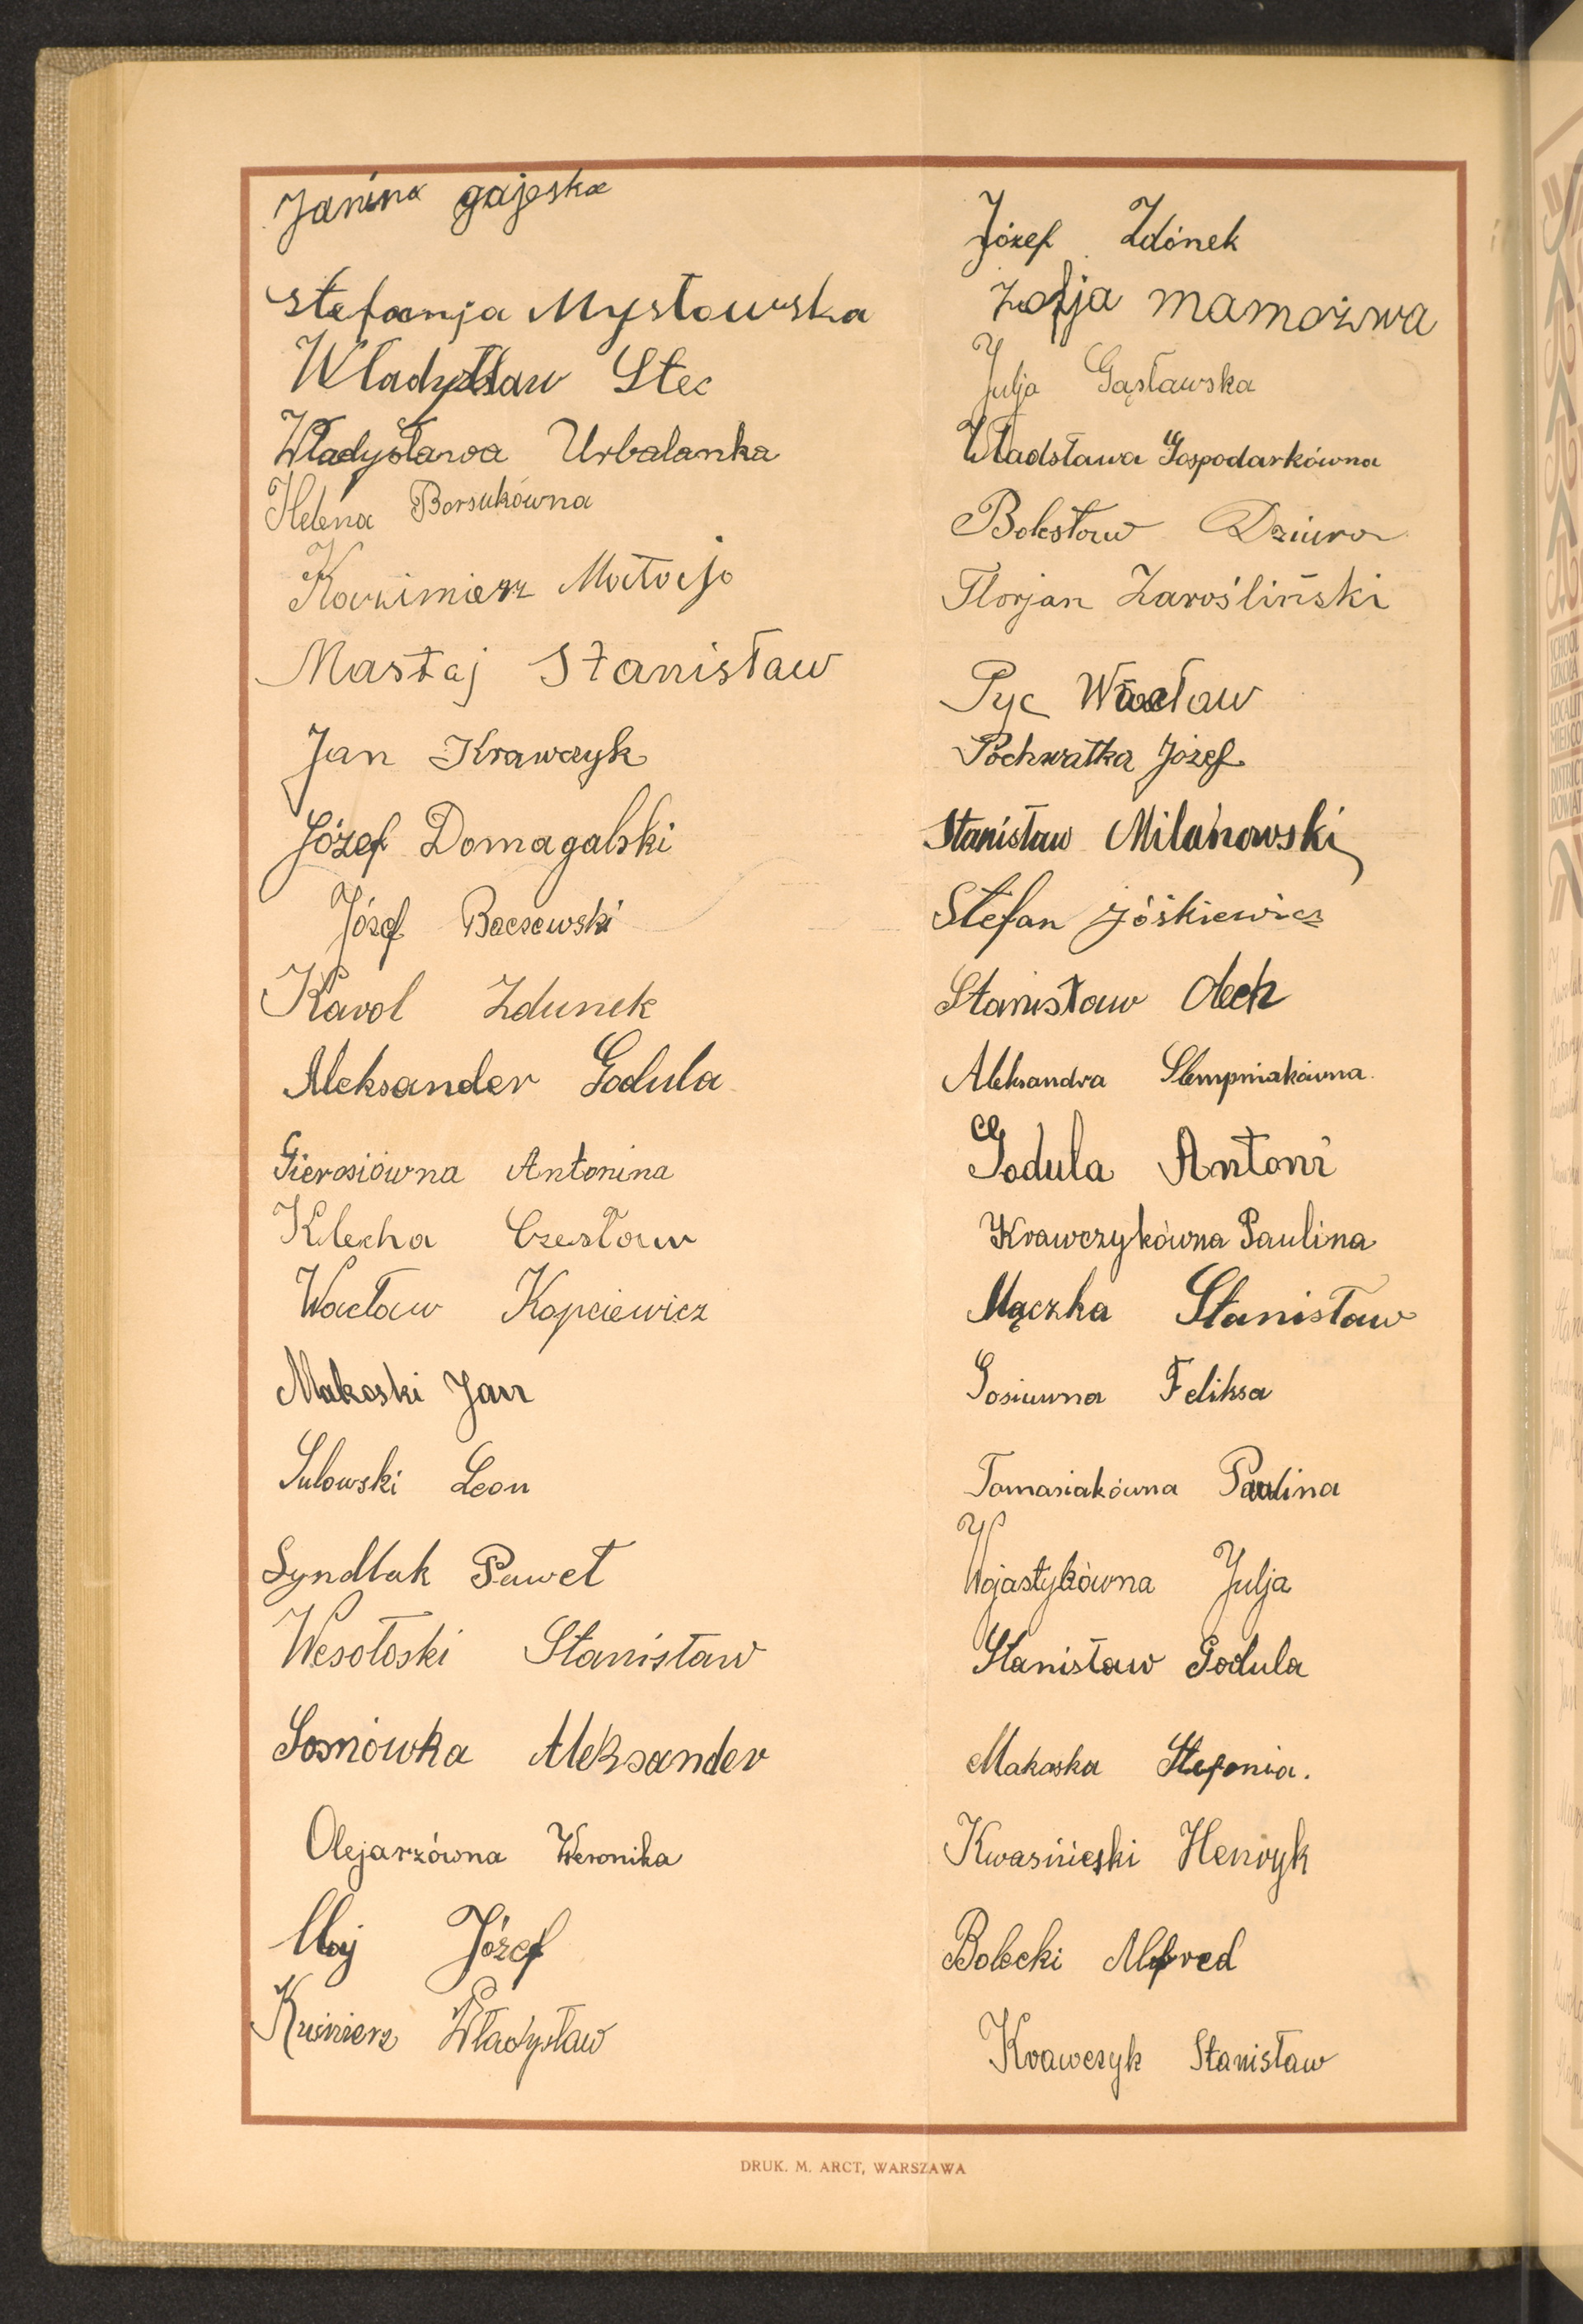 Janina gajeska
Stefanja Mysłowska
Władysław Stec
Władysława Urbalanka
Helena Borsukówna
Kazimierz Matocjo
Mastaj Stanisław
Jan Krawczyk
Józef Domagalski
Józef Baczewski
Karol Zdunek
Aleksander Godula
Gierosiówna Antonina
Klecha Czesław
Wacław Kapciewicz
Makoski Jan
Sulowski Leon
Syndlak Paweł
Wesołoski Stanisław
Sosnówka Aleksander
Olejarzówna Weronika
Józef
Kuśnierz Władysław
Józef Zdónek
Zofja
Julja Gąsławska
Władsława Gospodarkówna
Bolesław Dziura
Florjan Zarośliński
Pyc Wacław
Pochwatka Józef
Stanisław Milanowski
Stefan Jóśkiewicz
Stanisław Olech
Aleksandra Slempniakówna
Godula Antoni
Krawczykówna Paulina
Mączka Stanisław
Gosiuwna Feliksa
Tomasiakówna Paulina
Wojastykówna Julja
Stanisław Godula
Makoska Stefania.
Kwaśnieski Henryk
Bolecki Alfred
Krawczyk Stanisław
DRUK. M. ARCT, WARSZAWA
SCHOOL
SZKOŁA